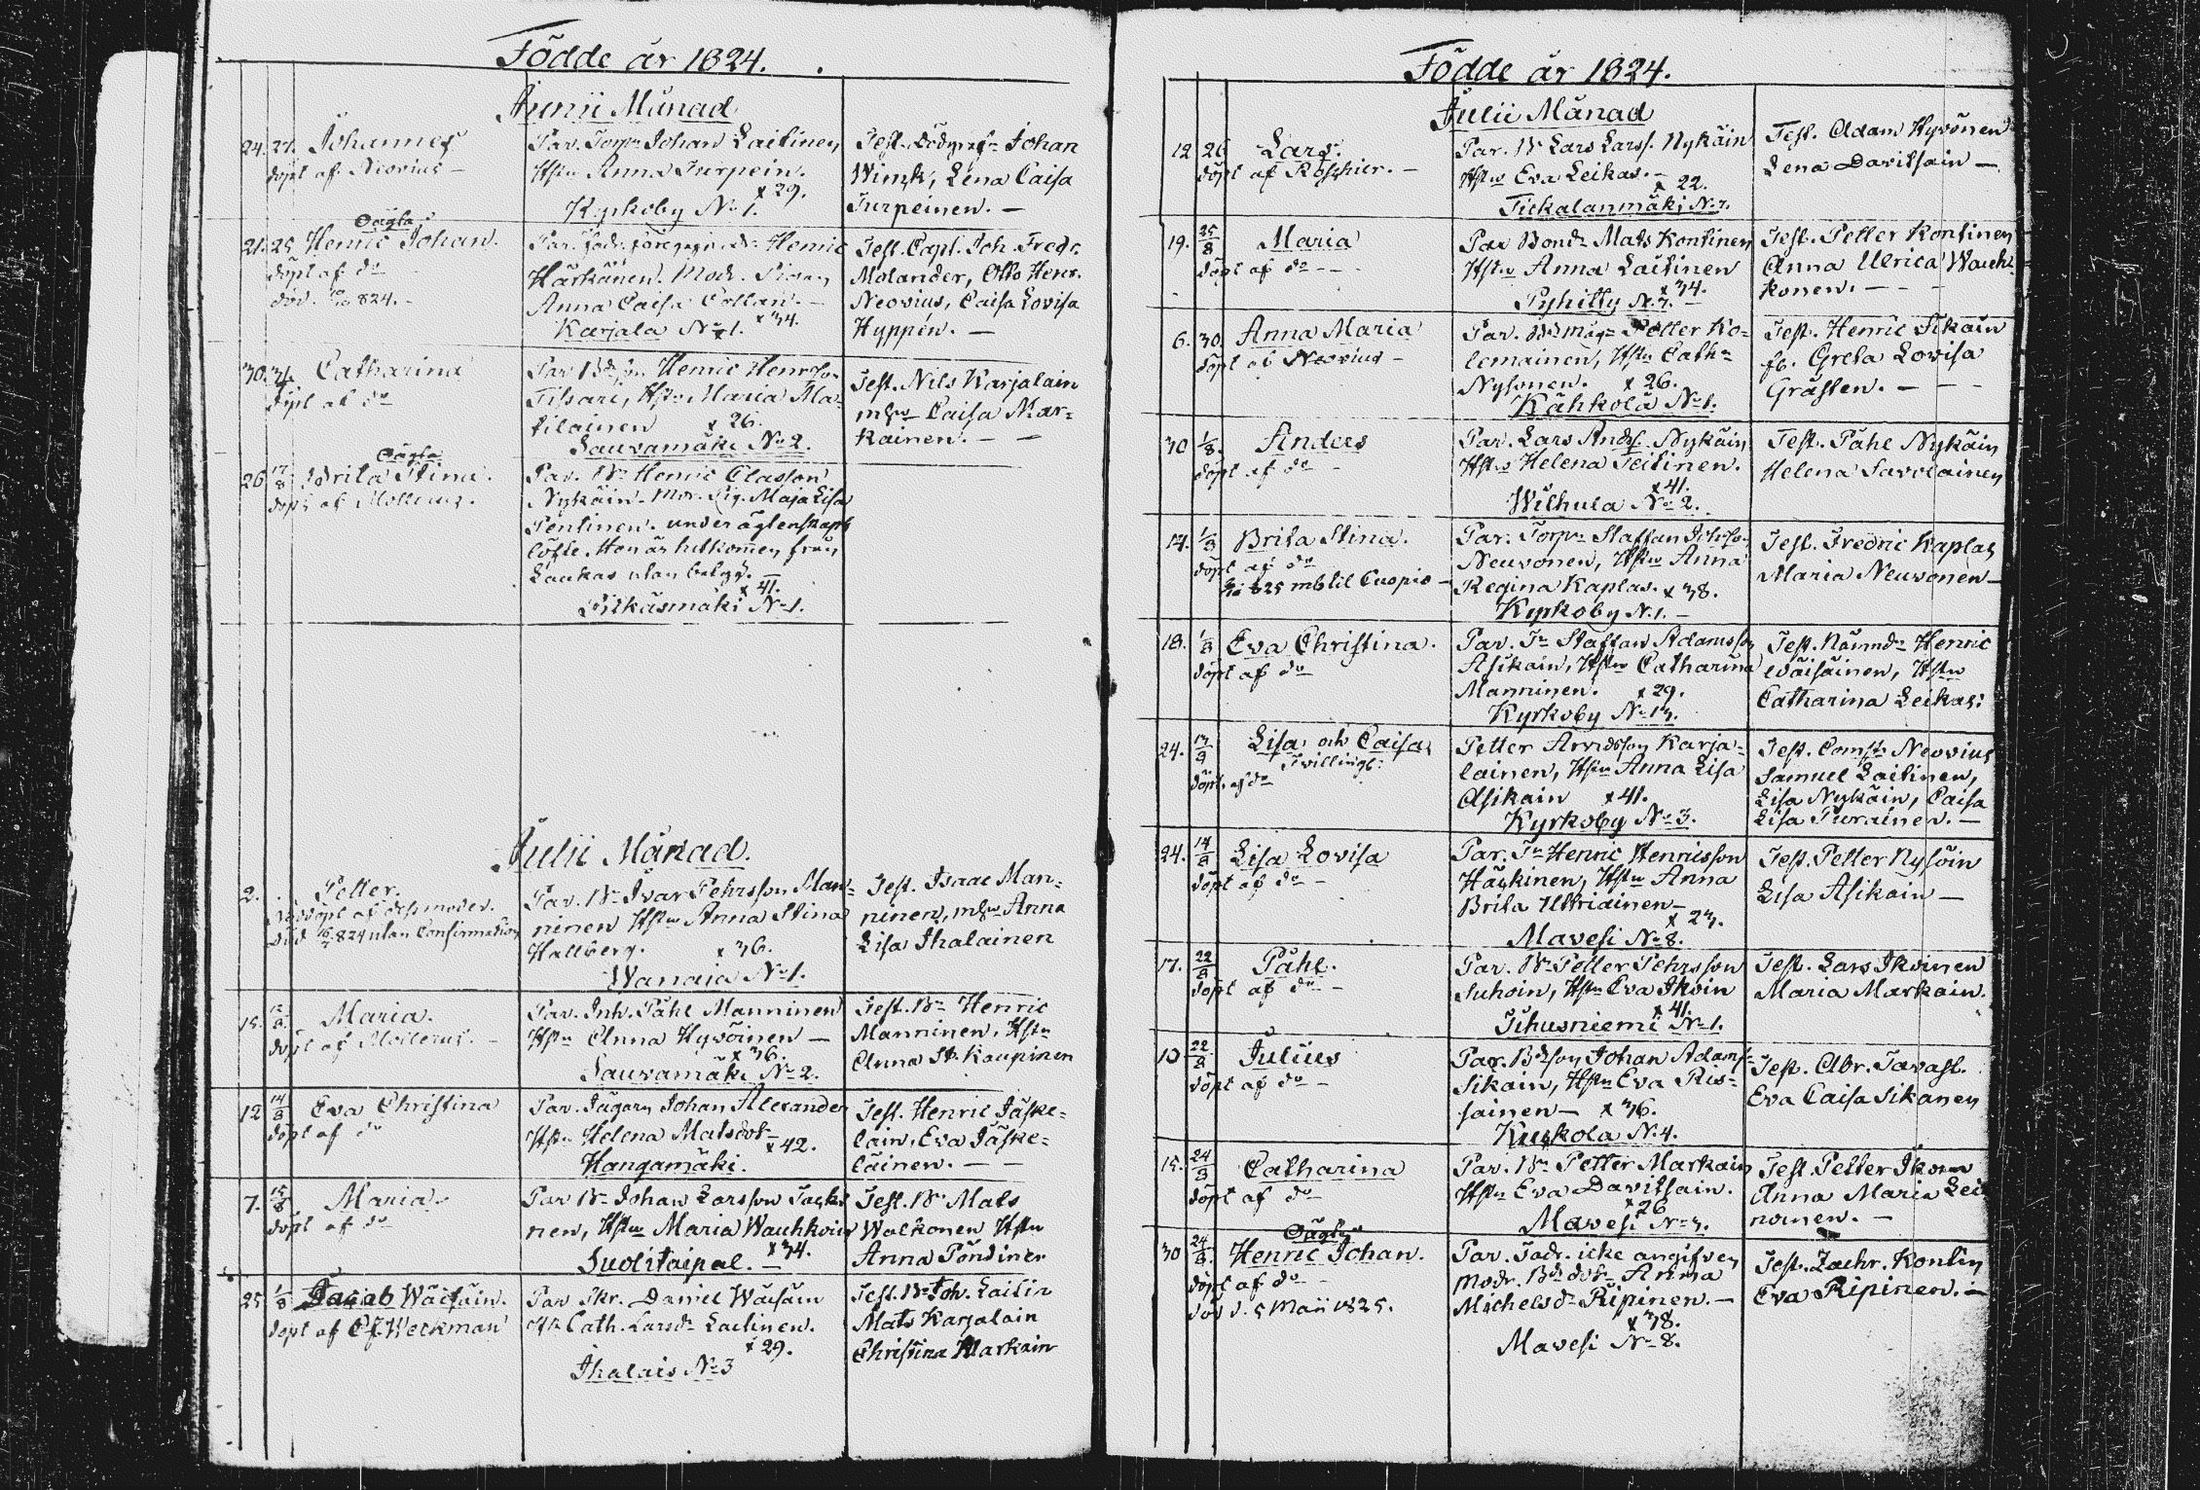 Födde år 1824.
Junii Månad
24. 27. Johannes
döpt af Neovius —
Par. Torpr Johan Laitinen
Hstu Anna Turpein.
x 29.
Kyrkoby No 1.
Test. Dödgrafr Johan
Lena Caisa
Turpeinen. —
Oägta
21. 25. Henric Johan.
döpt af do
död. 824. —
Par. fadr. föregifn. dr. Henric
Härkänen. Modr. Pigan
Anna Caisa Collan. —
Karjala No 1. x 34.
Test. Capl. Joh. Fredr.
Molander, Otto Henr.
Neovius, Caisa Lovisa
Hyppén. —
30. 31. Catharina
döpt af do
Par Henric Henrsson
Tissari, Hstu Maria Ma-
tilainen x 26.
Sauvamäki No 2.
Test. Nils Karjalain
Caisa Mar-
kainen. — —
Oägta
26 17/8 Brita Stina.
döpt af Mollerus.
Par. Br Henric Classon
Nykäin. Mor. Pig. Maja Lisa
Pentinen. under äktenskaps
löfte. Hon är hitkommen från
Laukas utan betyg. —
x 41.
Pitkäsmäki No 1.
Julii Månad.
2. Petter.
Nöddöpt af dess moder.
död 824 utan Confirmation
Par. Br Ivar Pehrsson Man-
ninen Hstu Anna Stina
Hallberg. x 36.
Wanaja No 1.
Test. Isaac Man-
ninen, Anna
Lisa Ihalainen
15. Maria.
döpt af Mollerus. —
Par. Inh. Påhl Manninen
Hstu Anna Hyvöinen —
x 36.
Sauvamäki No 2.
Test. Br Henric
Manninen, Hstu
Anna St. Kaupinen
12 14/8 Eva Christina
döpt af do
Par. Jägarn Johan Alexander
Hstu Helena Matsdotr
x 42.
Hangamäki.
Test. Henric Jäske-
lain, Eva Jäske-
läinen. — —
7. 15/8 Maria
döpt af do
Par Br Johan Larsson
nen, Hstu Maria Wauhkoin
Suolitaipal. — x 34.
Test. Br Mats
Walkonen Hstu
Anna Pöndinen
25 1/8 Jacob Wäisäin.
döpt af Weckman
Par Skr. Daniel Wäisäin
Hu Cath. Larsdr Laitinen.
x 29.
Ihalais No 3
Test. Br Joh. Laitin
Mats Karjalain
Christina Markain
Födde år 1824.
Julii Månad
12 26 Lars.
döpt af Roschier. —
Par. Br Lars Larss. Nykäin
Hstu Eva Leikas. —
x 22.
Tickalanmäki No 7.
Test. Adam Hyvönen
Lena Davitsain —
19. 25/8 Maria
döpt af do — —
Par Bondr Mats Kontinen
Hstu Anna Laitinen
x 34.
Pyhitty No 7. —
Test. Petter Kontinen
Anna Ulrica Wauh-
konen. — —
6. 30. Anna Maria
döpt af Neovius —
Par. Petter Ko-
lemainen, Hstu Cath-
Nysonen. x 26.
Kähkölä No 1.
Test. Henric Sikain
fr. Greta Lovisa
Gråsten. — — —
30 1/8. Anders
döpt af do —
Par. Lars Andrs. Nykäin
Hstu Helena Teitinen.
x 41.
Wilhula No 2.
Test. Påhl Nykäin
Helena Savolainen
14. 1/8 Brita Stina.
döpt af do
825 mbtil Cuopio —
Par. Torpr Staffan Johsson
Neuvonen, Hstu Anna
Regina Kaplas. x 38.
Kyrkoby No 1. —
Test. Fredric Kaplas
Maria Neuvonen —
18. 1/8 Eva Christina.
döpt af do
Par. Tr Staffan Adamsson
Asikain, Hstu Catharina
Manninen. x 29.
Kyrkoby No 13.
Test. Nämndn Henric
Wäisäinen, Hstu
Catharina Leikas:
24. Lisa och Caisa,
Tvillingr.
döpt. af do
Petter Arvidsson Karja-
lainen, Hstu Anna Lisa
Asikain x 41.
Kyrkoby No 3.
Test. Neovius
Samuel Laitinen,
Lisa Nykäin, Caisa
Lisa Purainen. —
24. 14/8 Lisa Lovisa
döpt af do —
Par. Tr Henric Henricsson
Häckinen, Hstu Anna
Brita Uttriainen —
x 23.
Mavesi No 8.
Test. Petter Nysöin
Lisa Asikain —
17. 22/8 Påhl.
döpt af do —
Par. Br Petter Pehrsson
Suhoin, Hstu Eva Ikoin
x 41.
Tihusniemi No 1.
Test. Lars Ikoinen
Maria Markain.
10 22/8 Julius
döpt af do —
Par. Bdsson Johan Adams-
Sikain, Hstu Eva Ris-
sainen — x 36.
Kuckola No 4.
Test. Abr. Tavast.
Eva Caisa Sikanen
15. 24/8 Catharina
döpt af do
Par. Br Petter Markain
Hstu Eva Davitsain.
x 26
Mavesi No 3.
Test Petter Ikonen
Anna Maria Lei
nonen. —
Oägta
30 24/8. Henric Johan.
döpt af do
död d. 5 Maii 1825.
Par. Fadr. icke angifven
Modr. Bdedotr Anna
Michelsdr Ripinen. —
x 38.
Mavesi No 8.
Test. Zachr. Kontin
Eva Ripinen. —